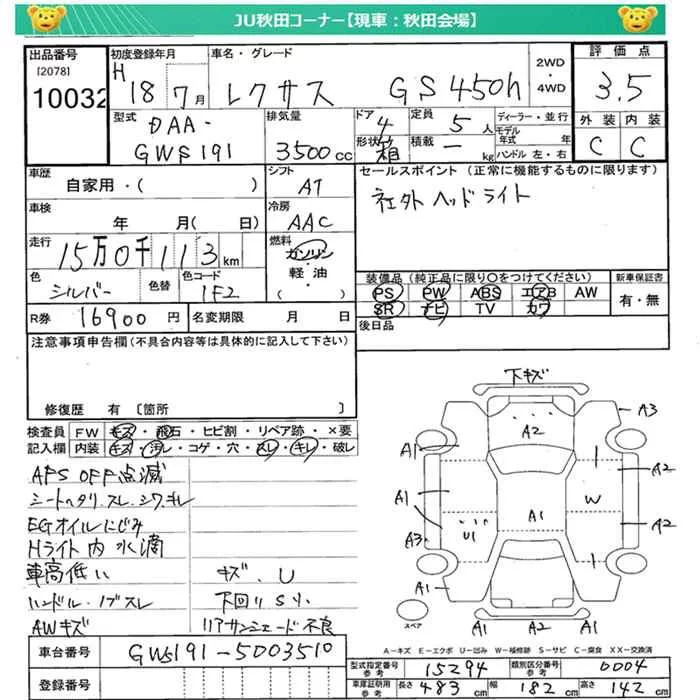 JU秋田コーナー【現車：秋田会場】
出品番号 初度登録年月 車名・グレード 2WD・4WD 評価点
[2078] 10032 H 18 7月 レクサス GS450h 3.5
型式 排気量 ドア 定員 ディーラー・並行 外装 内装
DAA-GWS191 3500cc 4 5人 モデル年式 年 C C
形状 箱 積載 ー kg ハンドル 左・右
車歴 シフト セールスポイント (正常に機能するものに限ります)
自家用・( ) AT 社外ヘッドライト
車検 冷房
年 月( 日) AAC
走行 燃料
15万0千113km ガソリン・軽油・( )
色 色替 色コード 装備品 (純正品に限り○をつけてください) 新車保証書
シルバー 1F2 PS PW ABS エアB AW 有・無
SR ナビ TV カワ
R券 16900円 名変期限 月 日 後日品
注意事項申告欄(不具合内容等は具体的に記入して下さい)
修復歴 有 [箇所 ]
検査員 FW キズ・飛石・ヒビ割・リペア跡・×要
記入欄 内装 キズ・汚レ・コゲ・穴・スレ・キレ・破レ
AFS OFF点滅
シートヘタリ.スレ.シワ.キレ
EGオイルにじみ
Hライト内水滴
車高低い キズ.U
ハンドル.ノブスレ 下回りSリ
AWキズ リアサンシェード不良
下キズ
A3
A2
A1 A2
A1 W
A1 A2
A3 U1
A1 A1
スペア A1 A2 A1
A－キズ E－エクボ U－凹み W－補修跡 S－サビ C－腐食 XX－交換済
車台番号 GWS191-5003510
登録番号
型式指定番号 参考 15294 類別区分番号 参考 0004
車庫証明用 参考 長さ 483cm 幅 182cm 高さ 142cm